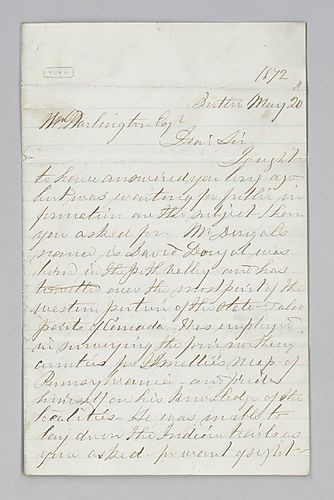 1872
Butler May 20
Wm Darlington Esqr
Dear Sir
I ought
to have answered you long ago
but was waiting for fuller in
formation on the subject I have
you asked for - Mr Dougals
name is David Dougal, was
born in the Path Valley and has
over the most part of the
western portion of the State & also
parts of Canada. Was employed
in surveying the four northern
counties for Melish's Map of
Pennsylvania - and prides
himself on his knowledge of the
localities - He was unable to
lay down the Indian trails as
you asked - for want of sight -